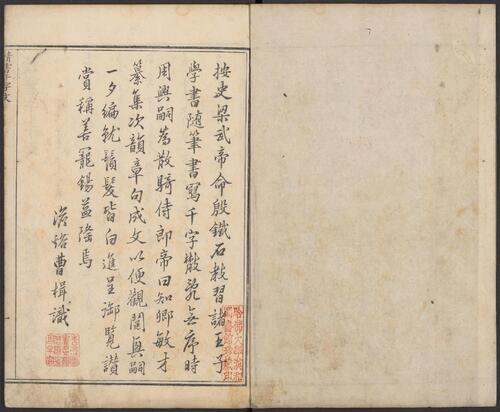 按史梁武帝命殷鐵石教習諸王子
學書隨筆書寫千字散亂無序時
周興嗣為散騎侍郎帝曰知卿敏才
纂集次韻章句成文以便觀閱興嗣
一夕編就鬚髮皆白進呈御覽讚
賞稱善寵錫益隆焉
曹楫識